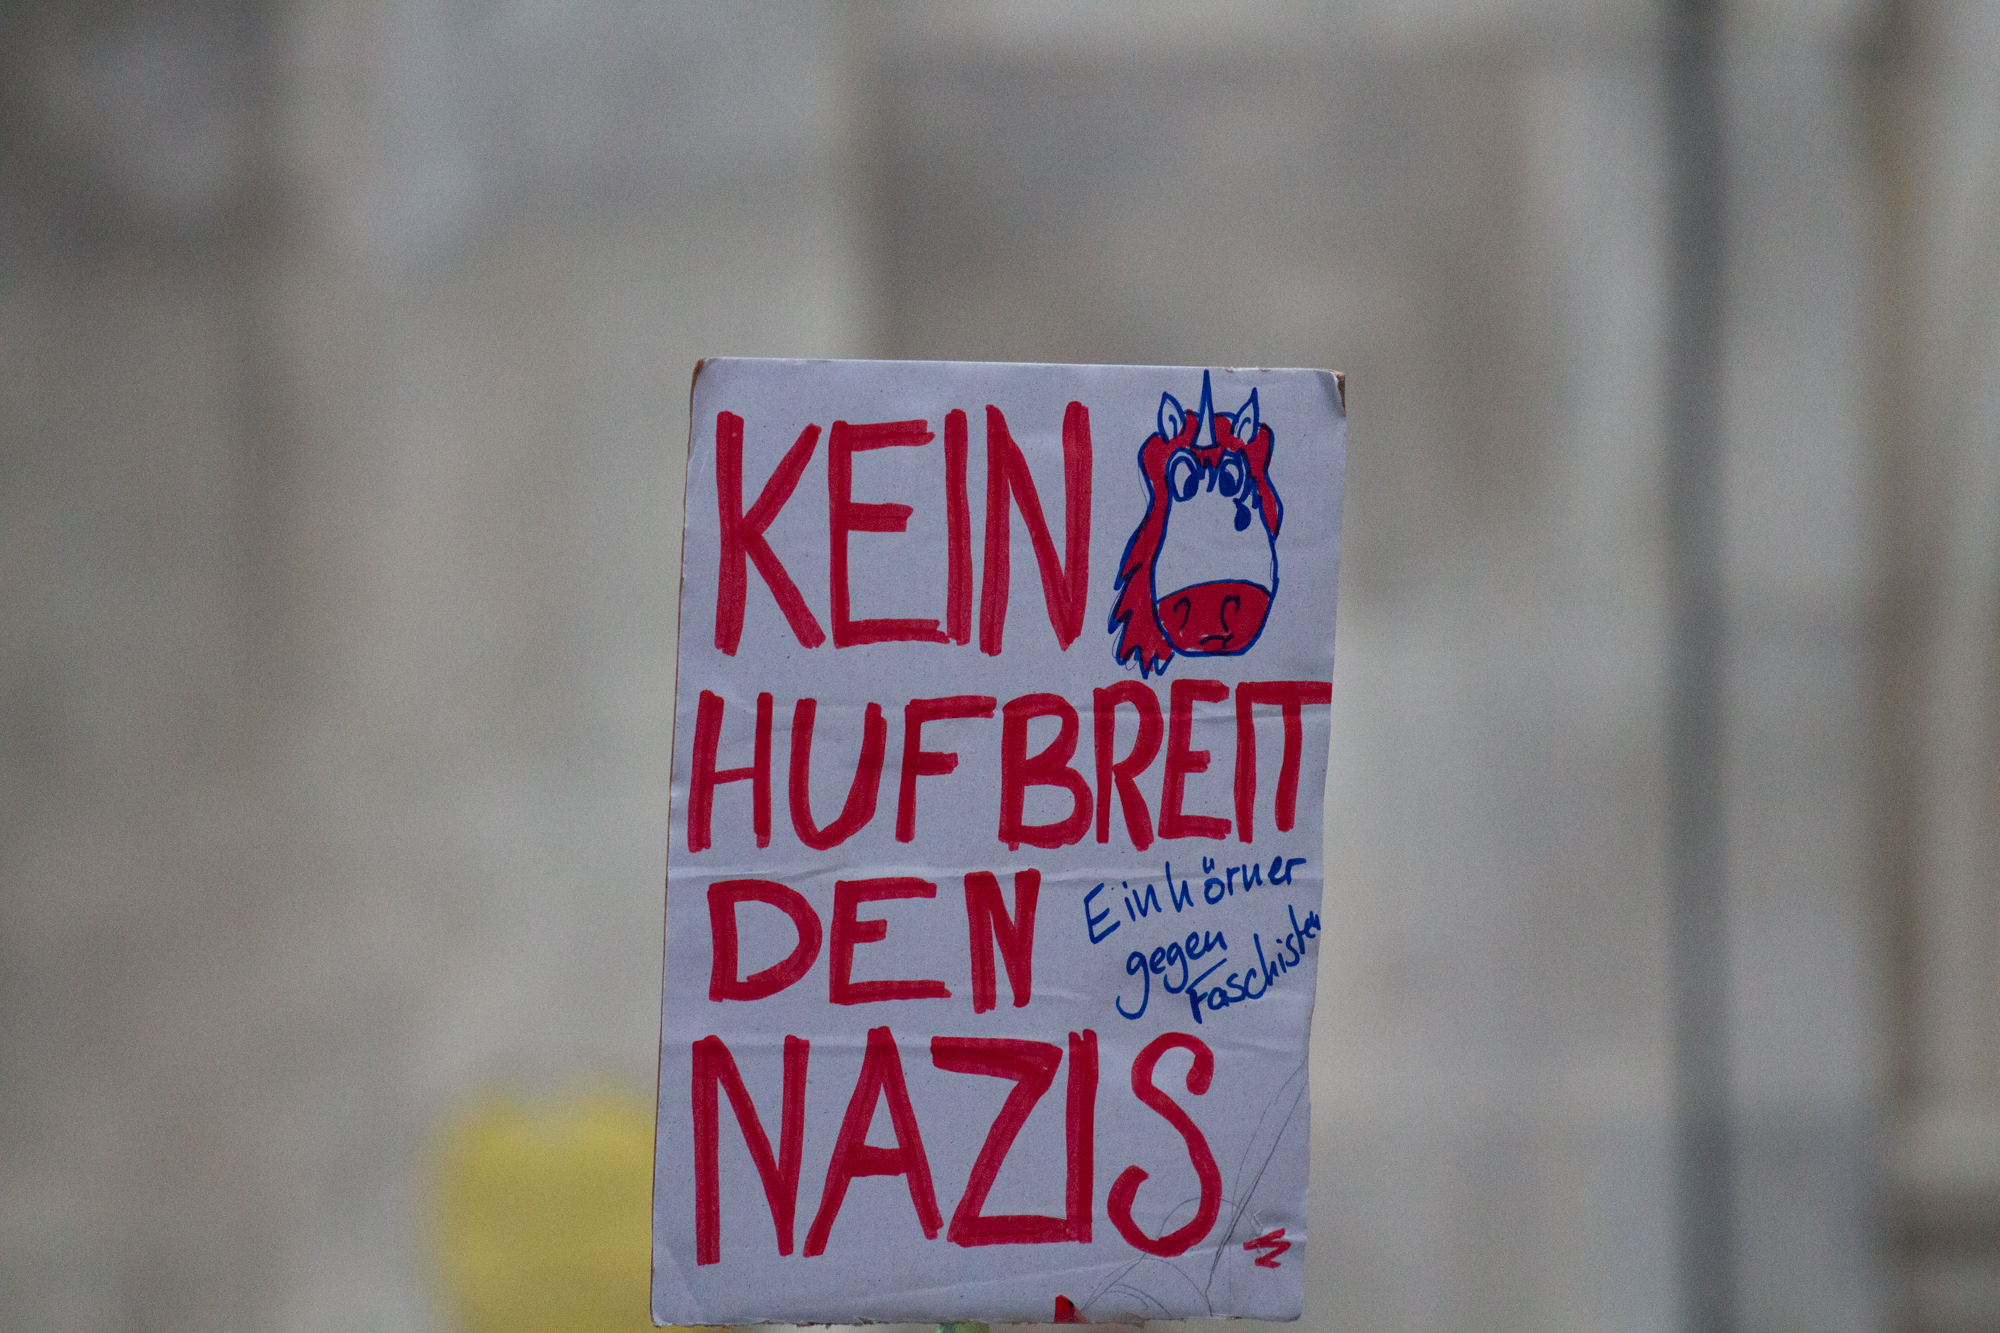 KEIN
HUFBREIT
DEN
Einhörner
gegen
Faschisten
NAZIS